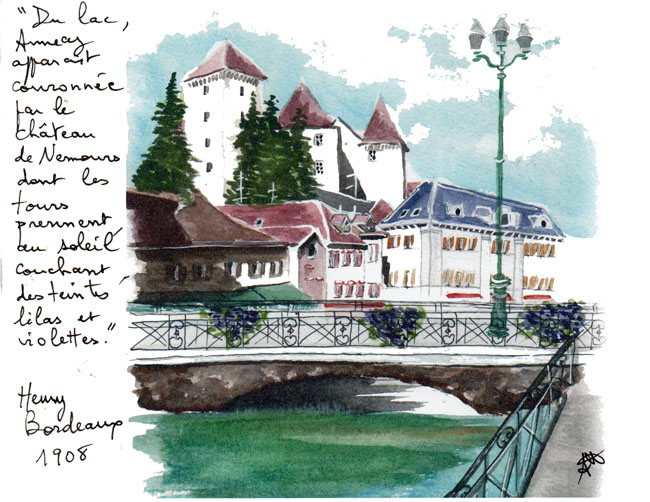 "Du lac,
Annecy
apparait
couronnée
par le
château
de Nemours
dont les
tours
prennent,
au soleil
couchant,
des teintes
lilas et
violettes."
Henry
Bordeaux
1908